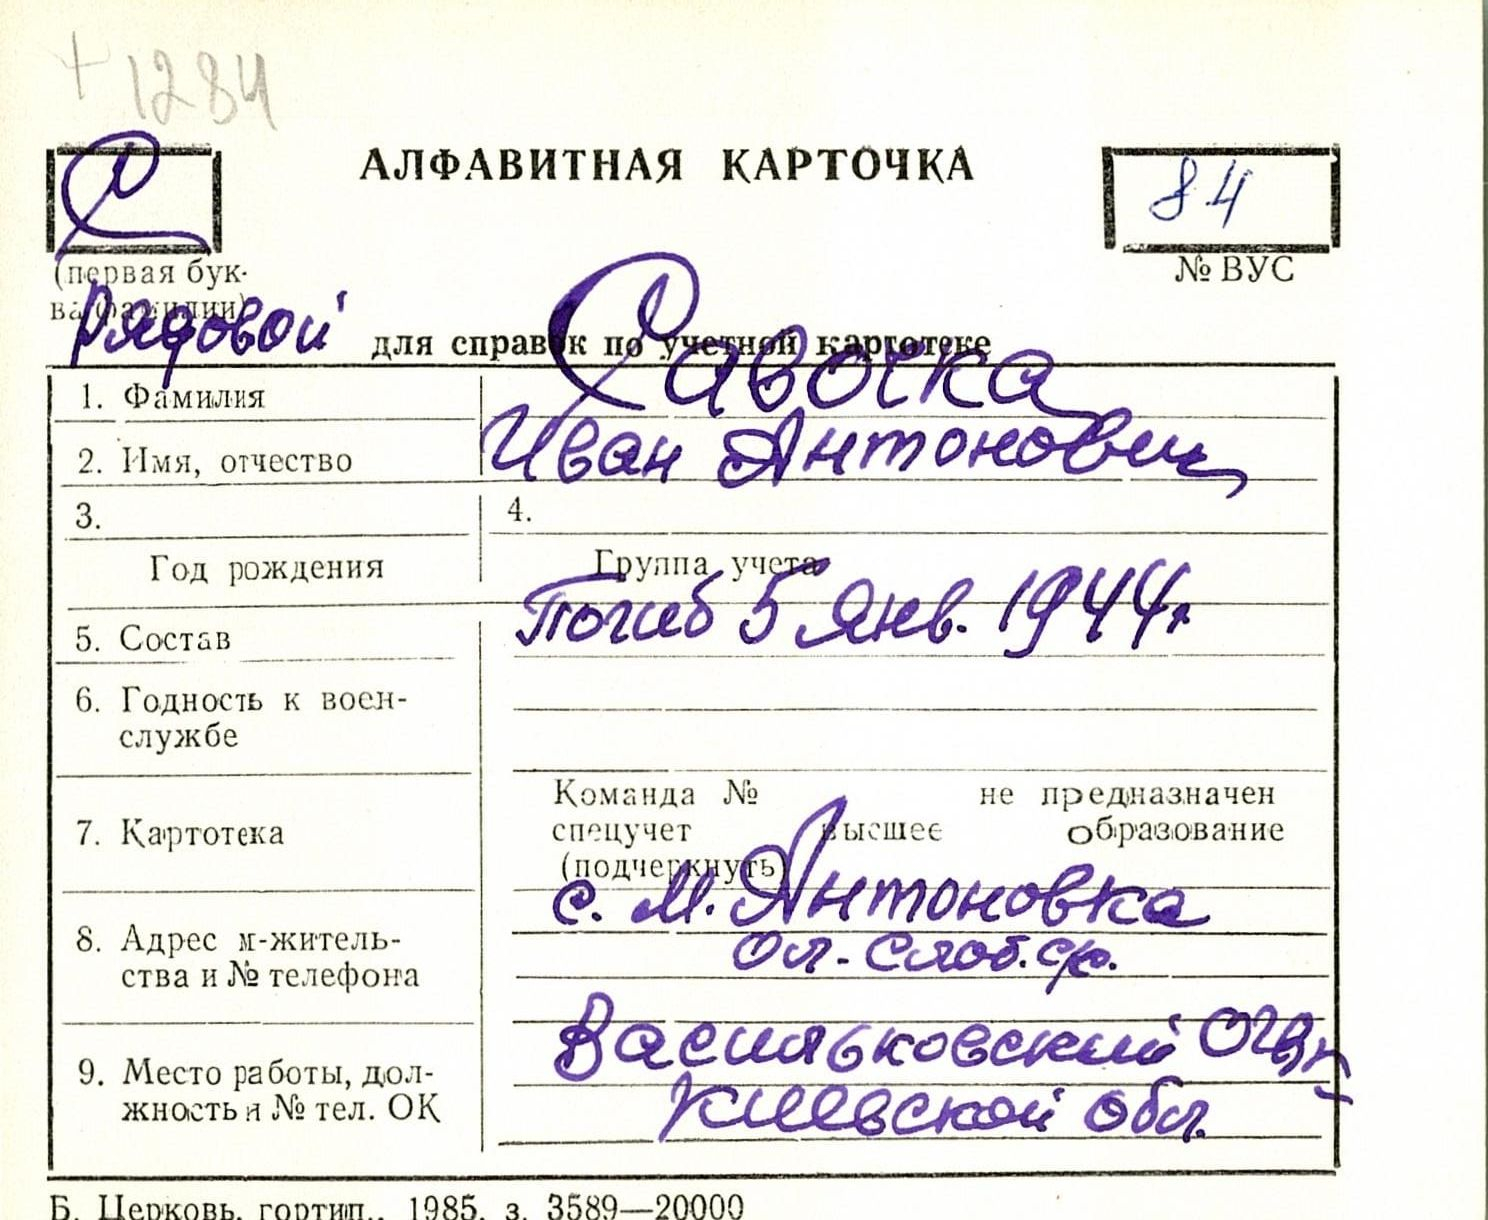 + 1284
С
АЛФАВИТНАЯ КАРТОЧКА
84
(первая бук-
ва фамилии)
№ ВУС
Рядовой
для справок по учетной картотеке
1. Фамилия Савочка
2. Имя, отчество Иван Антонович
3. 4.
Год рождения Группа учета
Погиб 5 янв. 1944г
5. Состав
6. Годность к воен-
службе
Команда № не предназначен
7. Картотека спецучет высшее образование
(подчеркнуть)
с. М. Антоновка
8. Адрес м-житель-
ства и № телефона
Ол-Слоб. с/с.
Васильковский ОГВК
9. Место работы, дол-
жность и № тел. ОК
Киевской обл.
Б. Церковь, гортип., 1985, з. 3589—20000